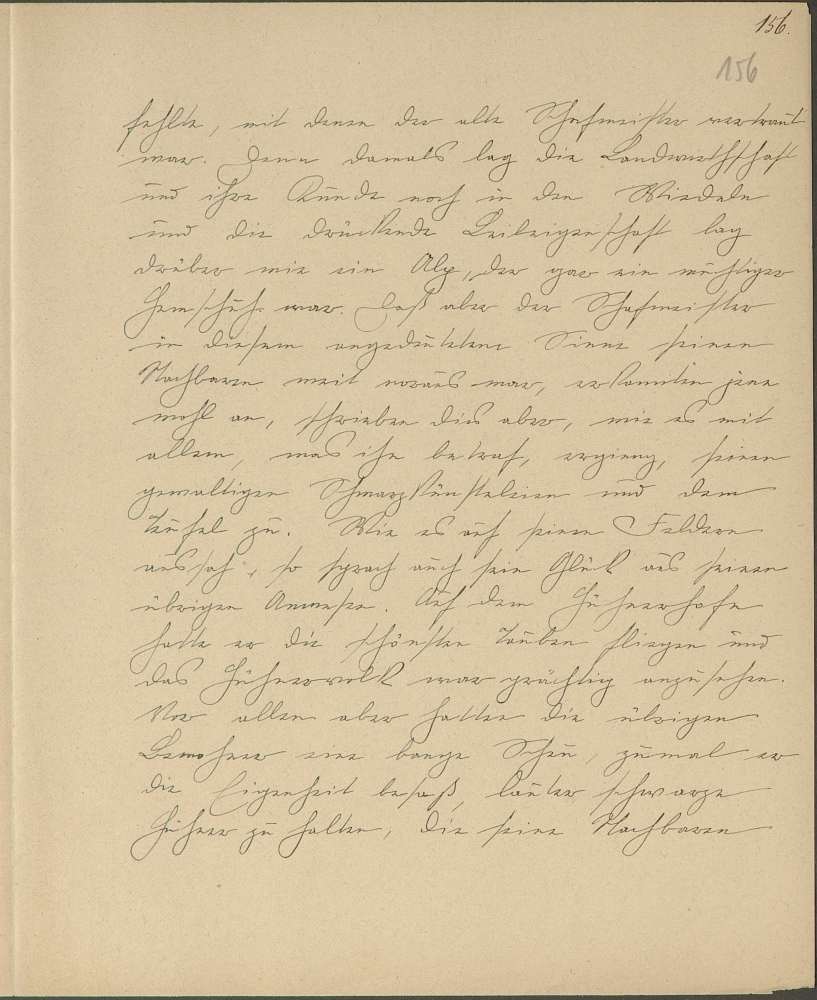 156.
156
fehlte, mit denen der alte Schafmeister vertraut
war. Denn damals lag die Landwirthschaft
und ihre Kunde noch in den Windeln
und die drückende Leibeigenschaft lag
drüber wie ein Alp, der gar ein mächtiger
Hemschuh war. Daß aber der Schafmeister
in diesem angedeuteten Sinne seinen
Nachbaren weit voraus war, erkannten jene
wohl an, schrieben dies aber, wie es mit
allem, was ihn betraf, ergieng, seinen
gewaltigen Schwarzkünsteleien und dem
Teufel zu. Wie es auf seinen Feldern
aussah, so sprach auch sein Glück aus seinen
übrigen Anwesen. Auf dem Hühnerhofe
hatte er die schönsten Tauben fliegen und
das Hühnervolk war prächtig anzusehen.
Vor allen aber hatten die übrigen
Bewohner eine bange Scheu, zumal er
die Eigenheit besaß, lauter schwarze
Hühner zu halten, die seine Nachbaren